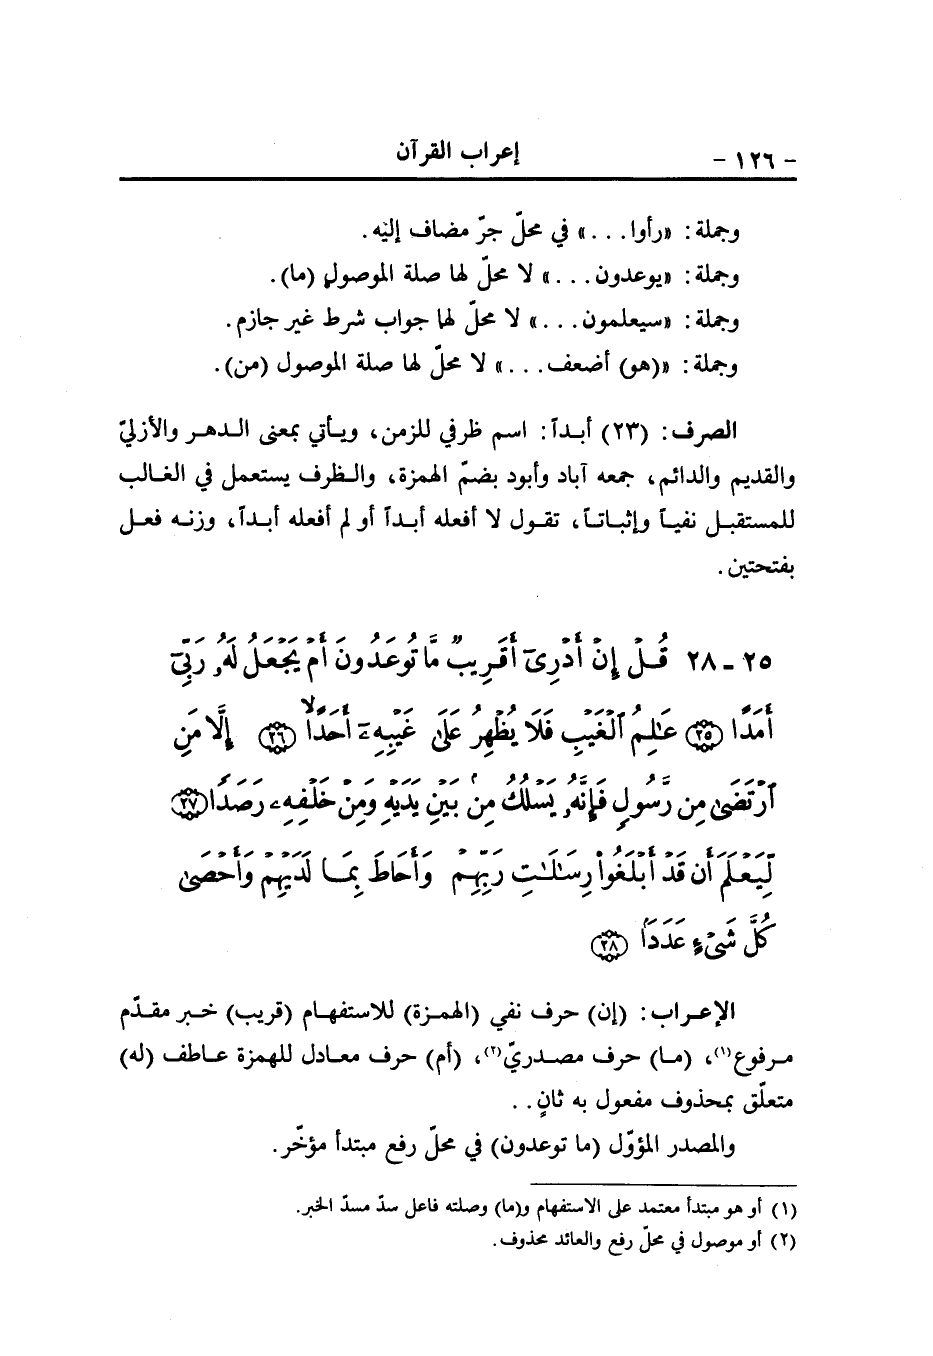 - ١٢٦ -
إعراب القرآن
وجملة: «رأوا...» في محلّ جرّ مضاف إليه.
وجملة: «يوعدون...» لا محلّ لها صلة الموصول (ما).
وجملة: «سيعلمون...» لا محلّ لها جواب شرط غير جازم.
وجملة: «(هو) أضعف...» لا محلّ لها صلة الموصول (من).
الصرف: (٢٣) أبـدآ: اسم ظرفي للزمن، ويـأتي بمعنى الـدهـر والأزليّ
والقديم والدائم، جمعه آباد وأبود بضمّ الهمزة، والـظرف يستعمل في الغـالب
للمستقبـل نفيـاً وإثبـاتـاً، تقـول لا أفعله أبـداً أو لم أفعله أبـداً، وزنـه فعـل
بفتحتين.
٢٥ - ٢٨ قُلْ إِنْ أَدْرِىٓ أَقَرِيبٌ مَّا تُوعَدُونَ أَمْ يَجْعَلُ لَهُۥ رَبِّىٓ
أَمَدًا ﴿٢٥﴾ عَـٰلِمُ ٱلْغَيْبِ فَلَا يُظْهِرُ عَلَىٰ غَيْبِهِۦٓ أَحَدًا ﴿٢٦﴾ إِلَّا مَنِ
ٱرْتَضَىٰ مِن رَّسُولٍ فَإِنَّهُۥ يَسْلُكُ مِنۢ بَيْنِ يَدَيْهِ وَمِنْ خَلْفِهِۦ رَصَدًا ﴿٢٧﴾
لِّيَعْلَمَ أَن قَدْ أَبْلَغُوا۟ رِسَـٰلَـٰتِ رَبِّهِمْ وَأَحَاطَ بِمَا لَدَيْهِمْ وَأَحْصَىٰ
كُلَّ شَىْءٍ عَدَدًۢا ﴿٢٨﴾
الإعـراب: (إن) حرف نفي (الهمـزة) للاستفهـام (قريب) خـبر مقـدّم
مـرفوع(١)، (مـا) حرف مصـدريّ(٢)، (أم) حرف معـادل للهمزة عـاطف (له)
متعلّق بمحذوف مفعول به ثانٍ..
والمصدر المؤوّل (ما توعدون) في محلّ رفع مبتدأ مؤخّر.
(١) أو هو مبتدأ معتمد على الاستفهام و(ما) وصلته فاعل سدّ مسدّ الخبر.
(٢) أو موصول في محلّ رفع والعائد محذوف.